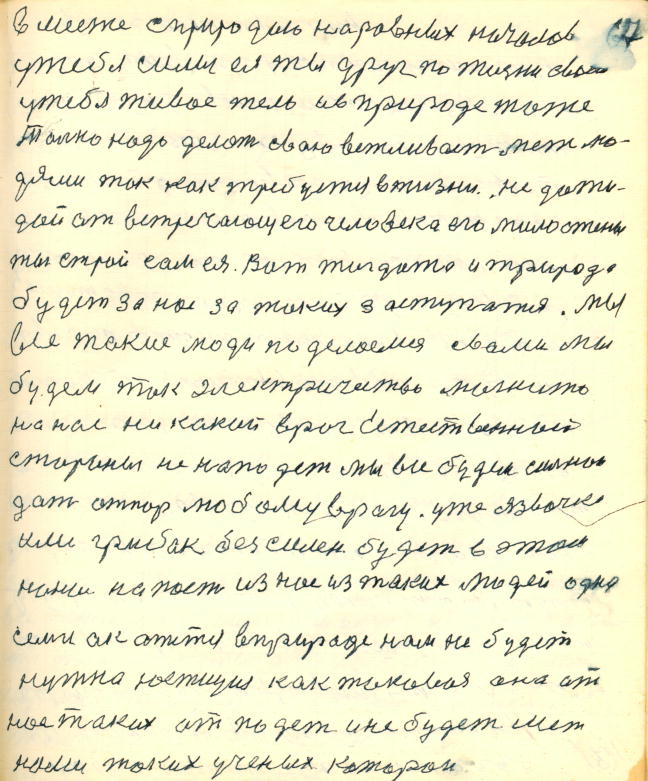 вместе с природою наравных началов 67
утебя сили ея ты друг по жизни свои
утебя живое тело ив природе тоже
Толко надо делат сваю вежливаст меж лю-
дями так как требуется вжизни. не дожи-
дай от встречающегочеловека его милостены
ты строй сам ея. Вот тогдато и природа
будет за нас за таких заступатся. Мы
все такие люди поделаемся свами мы
будем так электричества магнито
на нас никакой враг естественной
стораны не нападет мы все будем силно
дат отпор любому врагу. уже язвочка
или грыбак безсилен будет в этом
нами напаст изнас изтаких людей одна
семи акажится вприроде нам не будет
нужна юстиция как таковая она от
нас таких отпадет ине будет меж
нами таких ученых каторои